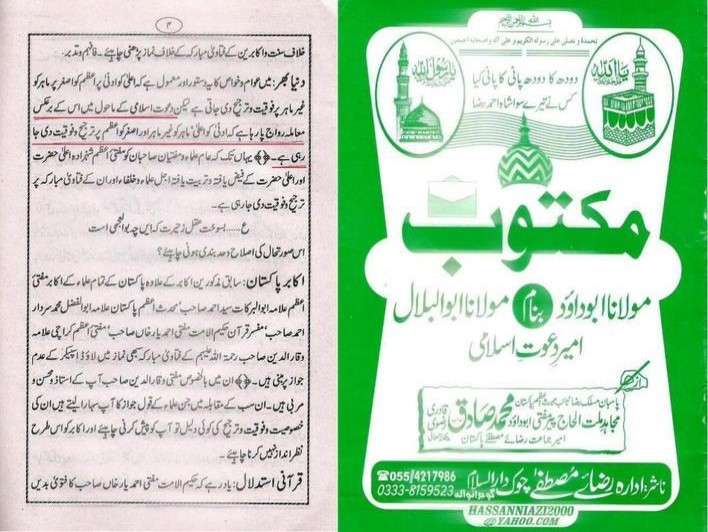 ۳
خلاف سنت و اکابرین کے فتاویٰ مبارکہ کے خلاف نماز پڑھنی چاہئے ۔ فافہم و تدبر
دنیا بھر: میں عوام و خواص کا یہ دستور اور معمول ہے کہ اعلیٰ کو ادنیٰ پر اعظم کو اصغر پر ماہر کو
غیر ماہر پر فوقیت و ترجیح دی جاتی ہے لیکن دعوت اسلامی کے ماحول میں اس کے برعکس
معاملہ رواج پا رہا ہے کہ ادنیٰ کو اعلیٰ ماہر کو غیر ماہر اور اصغر کو اعظم پر ترجیح و فوقیت دی جا
رہی ہے ۔ یہاں تک کہ عام علماء و مفتیان صاحبان کو مفتی اعظم شہزادہ اعلیٰ حضرت
اور اعلیٰ حضرت کے فیض یافتہ و تربیت یافتہ اجل علماء و خلفاء اور ان کے فتاویٰ مبارکہ پر
ترجیح و فوقیت دی جا رہی ہے ۔
ع ..... بسوخت عقل ز حیرت کہ ایں چہ بوالعجمی است
اس صورتحال کی اصلاح و حد بندی ہونی چاہئے؟
اکابر پاکستان: سابق مذکورین اکابر کے علاوہ پاکستان کے تمام علماء کے اکابر مفتی
اعظم علامہ ابوالبرکات سید احمد صاحب محدث اعظم پاکستان علامہ ابوالفضل محمد سردار
احمد صاحب مفسر قرآن حکیم الامت مفتی احمد یار خاں صاحب مفتی اعظم کراچی علامہ
وقار الدین صاحب رحمۃ اللہ علیہم کے فتاویٰ مبارکہ بھی نماز میں لاؤڈ اسپیکر کے عدم
جواز پر مبنی ہیں ۔ ان میں بالخصوص مفتی وقار الدین صاحب آپ کے استاذ و محسن و
مربی ہیں ۔ ان سب کے مقابلہ میں جن علماء کے قول جواز کا آپ سہارا لیتے ہیں ان کی
خصوصیت و فوقیت و ترجیح کی کوئی دلیل ہو تو آپ کو پیش کرنی چاہئے اور اکابر کو اس طرح
نظر انداز نہیں کرنا چاہئے ۔
قرآنی استدلال: یاد رہے کہ حکیم الامت مفتی احمد یار خاں صاحب کا فتویٰ بدیں
بسم اللہ الرحمن الرحیم
نحمدہ و نصلی علی رسولہ الکریم و علی آلہ و اصحابہ اجمعین
یا اللہ
یا رسول اللہ
دودھ کا دودھ پانی کا پانی کیا
کس نے تیرے سوا شاہ احمد رضا
مکتوب
مولانا ابوداؤد بنام مولانا ابوالبلال
امیر دعوت اسلامی
از
پاسبان مسلک رضا نائب محدث اعظم پاکستان
مجاہد ملت الحاج پیر مفتی ابوداؤد محمد صادق قادری رضوی
امیر جماعت رضائے مصطفےٰ پاکستان
ناشر: ادارہ رضائے مصطفےٰ چوک دارالسلام گوجرانوالہ
055/4217986
0333-8159523
HASSANNIAZI2000
@YAHOO.COM